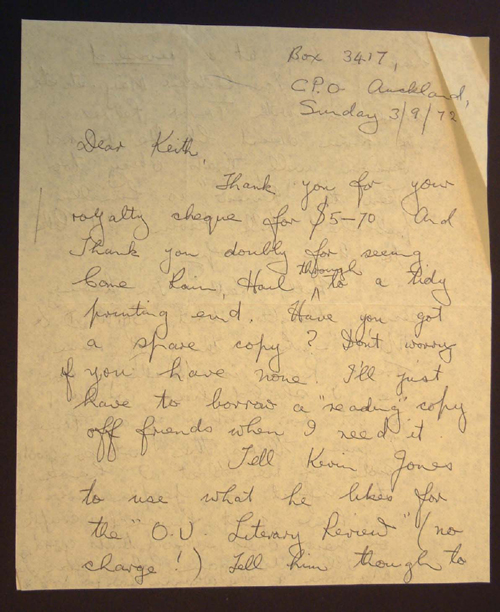 Box 3417,
C.P.O Auckland,
Sunday 3/9/72
Dear Keith,
Thank you for your
royalty cheque for $5-70 And
Thank you doubly for seeing
through
Come Rain, Hail ^ to a tidy
printing end. Have you got
a spare copy? Don't worry
if you have none. I'll just
have to borrow a "reading" copy
off friends when I need it
Tell Kevin Jones
to use what he likes for
the "O.U. Literary Review" (no
charge!) Tell him though to